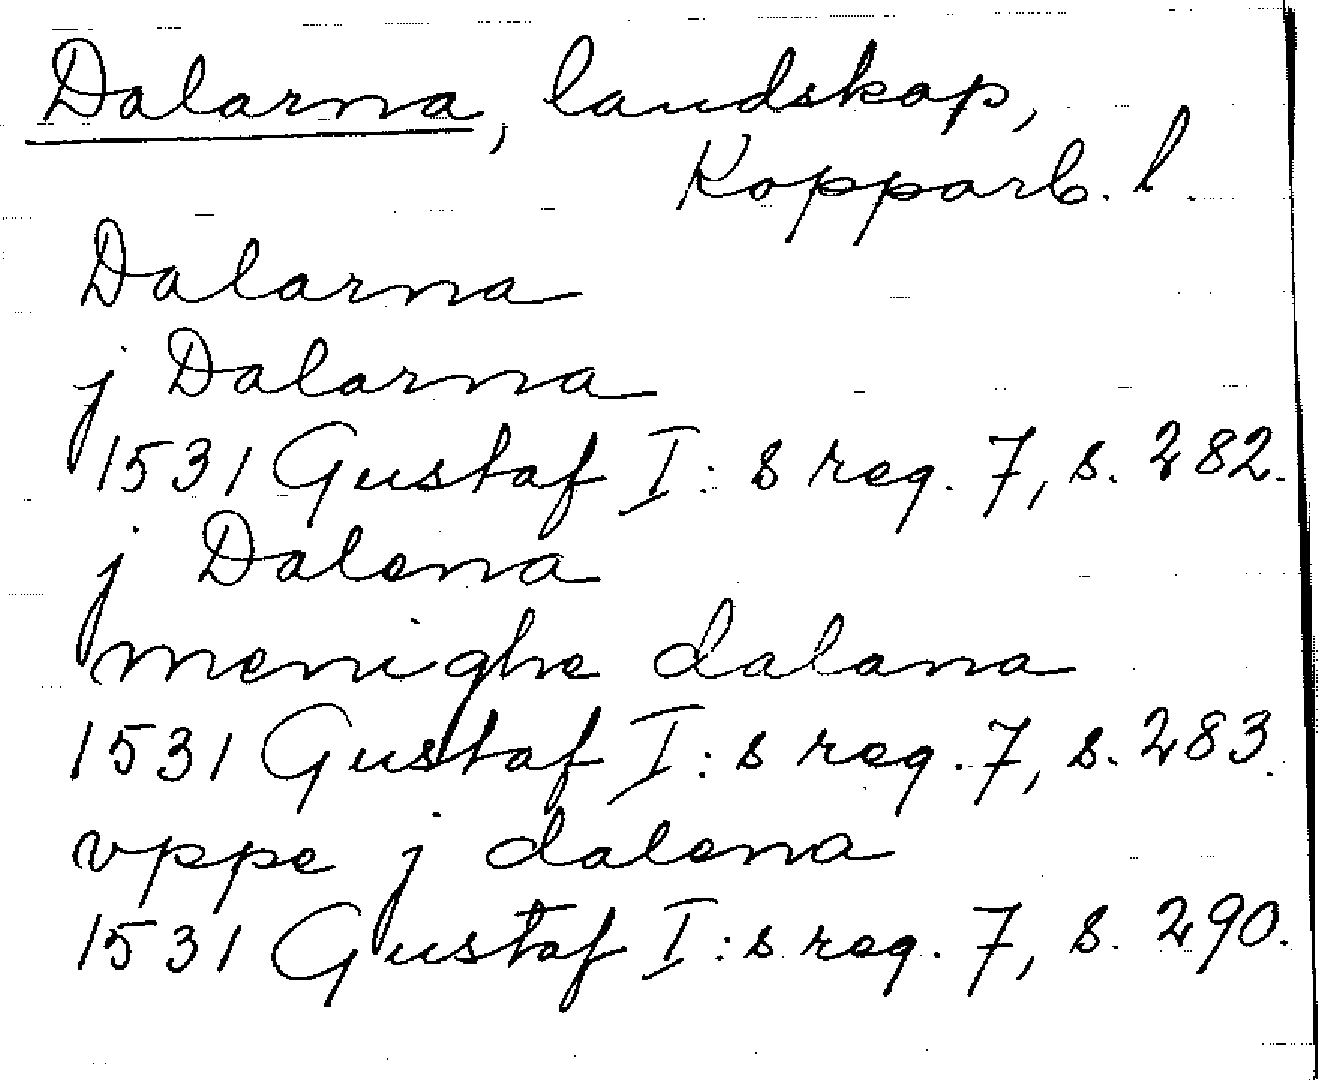 Dalarna, landskap,
Kopparb. l.
Dalarna
j Dalarna
1531 Gustaf I: s reg. 7, s. 282.
j Dalena
menighe dalana
1531 Gustaf I: s reg. 7, s. 283.
vppe j dalena
1531 Gustaf I: s reg. 7, s. 290.